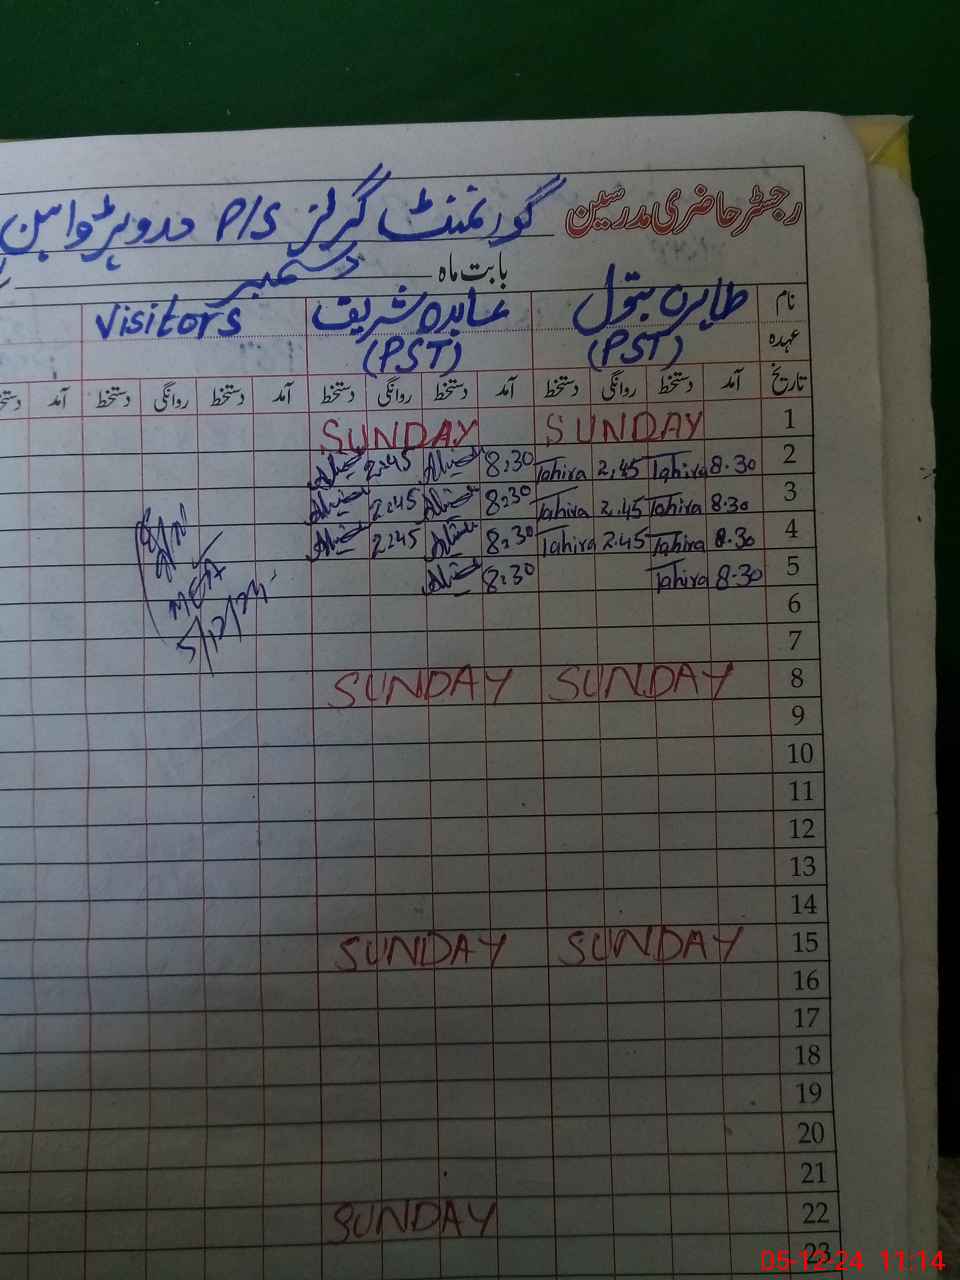 رجسٹر حاضری مدرسین گورنمنٹ گرلز P/S
بابت ماہ دسمبر
نام طاہرہ بتول عابدہ شریف Visitors
عہدہ (PST) (PST)
تاریخ آمد دستخط روانگی دستخط آمد دستخط روانگی دستخط آمد دستخط روانگی دستخط آمد دستخط
1 SUNDAY SUNDAY
2 8.30 Tahira 2.45 Tahira 8:30 2:45
3 8.30 Tahira 2.45 Tahira 8:30 2:45
4 8.30 Tahira 2.45 Tahira 8:30 2:45
5 8.30 Tahira 8:30
6
7
8 SUNDAY SUNDAY
9
10
11
12
13
14
15 SUNDAY SUNDAY
16
17
18
19
20
21
22 SUNDAY
23
MEA
5/12/24
05-12-24 11:14